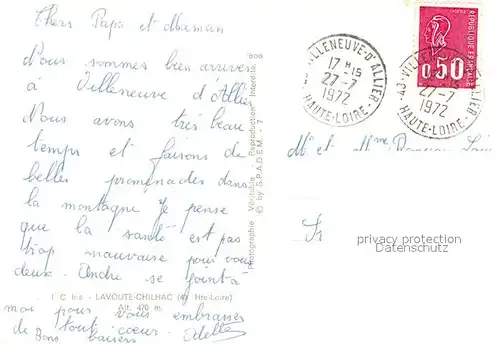 Chers Papa et Maman
Nous sommes bien arrivés
à Villeneuve d'Allier
Nous avons très beau
temps et faisons de
belles promenades dans
la montagne Je pense
que la santé est pas
trop mauvaise pour vous
deux. Andre se joint à
I. C. bis - LAVOUTE-CHILHAC (43 Hte-Loire)
Alt. 470 m.
moi pour vous embrasser
de tout coeur. Odette
Bons baisers
Photographie Véritable - Reproduction Interdite
© by S.P.A.D.E.M. - 7
VILLENEUVE-D'ALLIER
17 H 15
27-7
1972
HAUTE-LOIRE
43-VILLENEUVE-D'ALLIER
27-7
1972
HAUTE-LOIRE
REPUBLIQUE FRANCAISE
0,50
Mr et Mme
privacy protection
Datenschutz